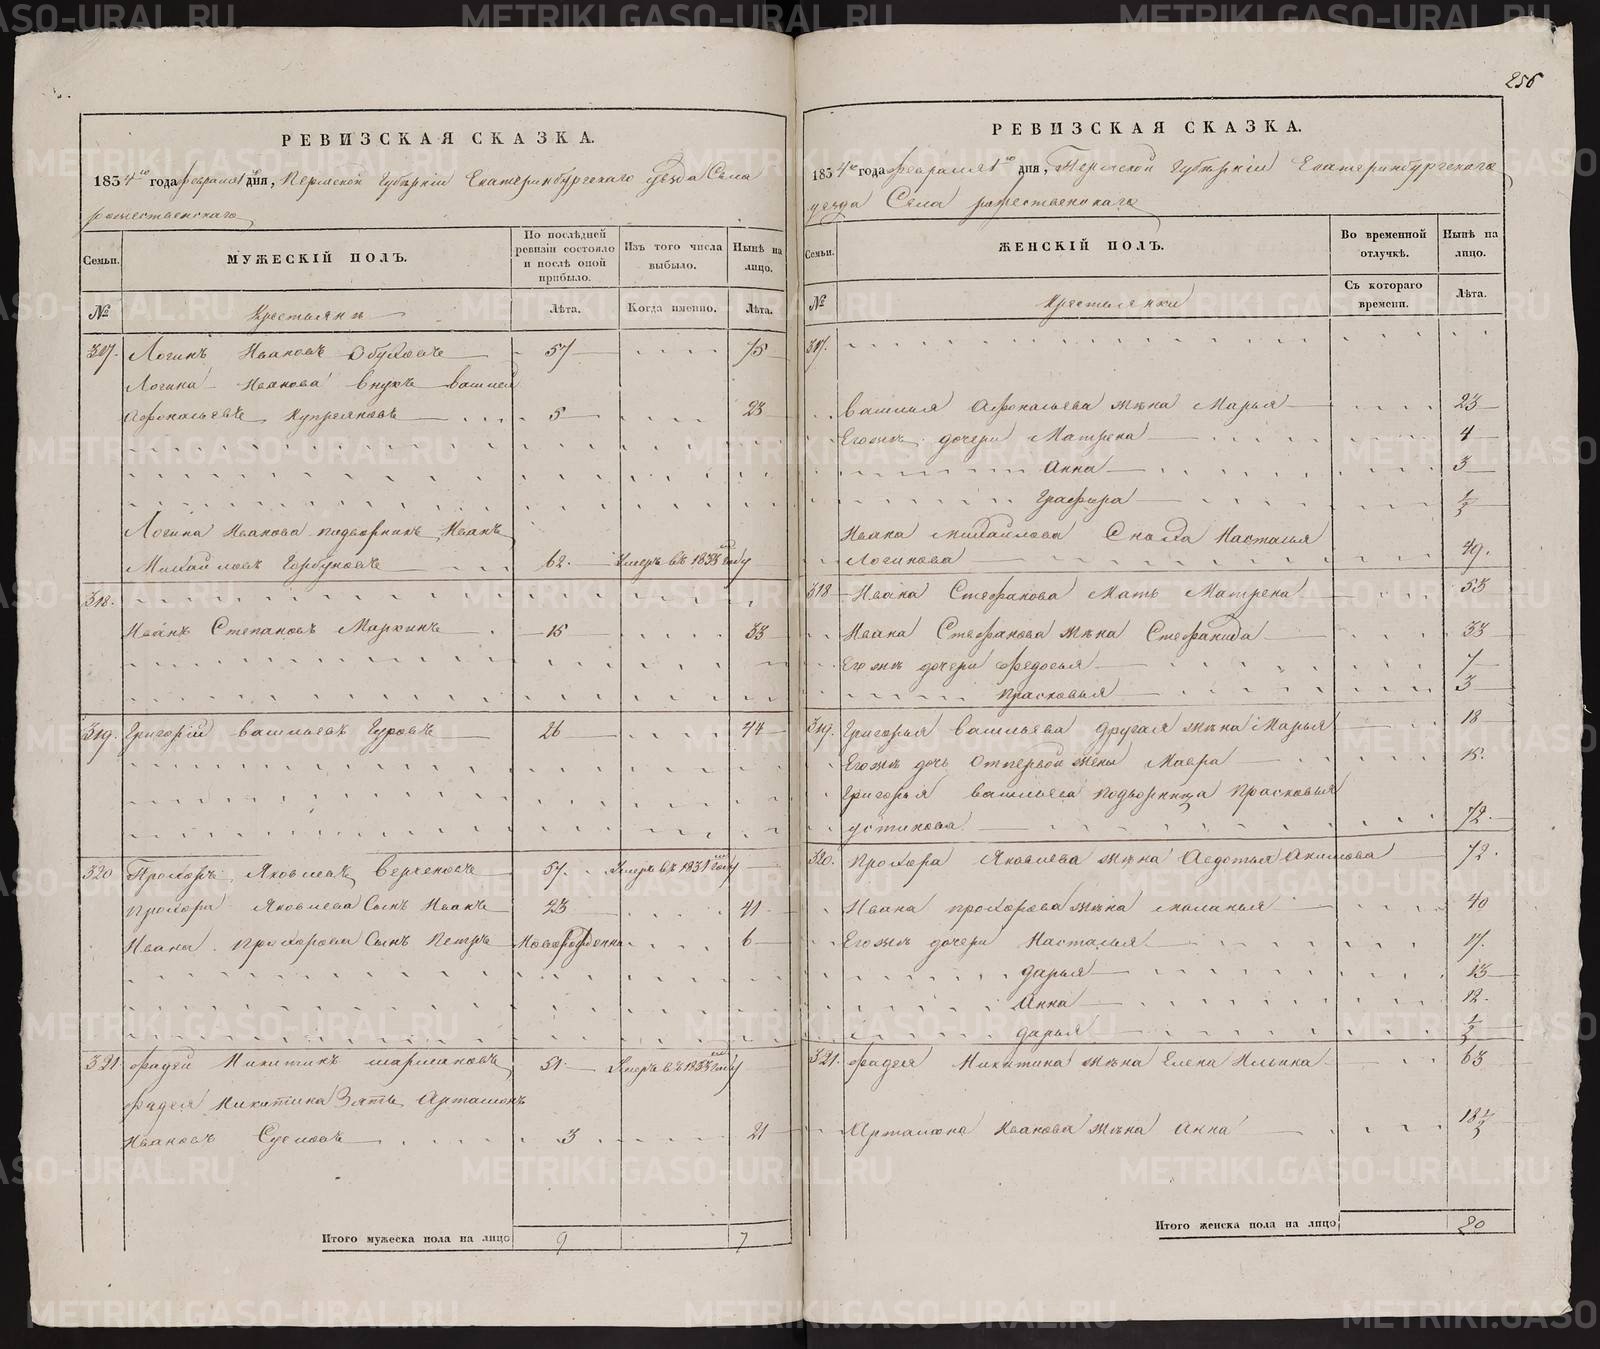 256
РЕВИЗСКАЯ СКАЗКА.
1834го года февраля 1го дня, Пермской Губернiи Екатеринбургскаго уезда Села
рожественскаго
Семьи.
МУЖЕСКIЙ ПОЛЪ.
По послѣдней ревизiи состояло и послѣ оной прибыло.
Изъ того числа выбыло.
Нынѣ на лицо.
№
Крестьянъ
Лѣта.
Когда именно.
Лѣта.
317. Логинъ Ивановъ Обуховъ 57 75
Логина Иванова внукъ Василей
Афонасьевъ Куприяновъ 5 23
Логина Иванова подворникъ Иванъ
Михайловъ Горбуновъ 62. Умеръ въ 1833 году
318.
Иванъ Степановъ Маркинъ 15 33
319. Григорiй Васильевъ Гуровъ 26 44
320 Прохоръ Яковлевъ 57. Умеръ въ 1831 году
Прохора Яковлева Сынъ Иванъ 23 41
Ивана Прохорова Сынъ Петръ Новорожденна 6
321 Фадей Никитинъ 51 Умеръ въ 1833 году
Фадея Никитина Зять Артамонъ
Ивановъ 3 21
Итого мужеска пола на лицо 9 7
РЕВИЗСКАЯ СКАЗКА.
1834го года февраля 1го дня, Пермской Губернiи Екатеринбургскаго
уезда Села рожественскаго
Семьи.
ЖЕНСКIЙ ПОЛЪ.
Во временной отлучкѣ.
Нынѣ на лицо.
№
Крестьянки
Съ котораго времени.
Лѣта.
317.
Василья Афонасьева жена Марья 23
Его жъ дочери Матрена 4
Анна 3
Глафира 1/2
Ивана Михайлова Сноха Настасья
Логинова 49.
318 Ивана Стефанова Мать Матрена 55
Ивана Стефанова жена Стефанида 33
Его жъ дочери Федосья 7
Прасковья 3
319. Григорья Васильева другая жена Марья 18
Его жъ дочь от первой жены Мавра 15.
Григорья Васильева подворница Прасковья
Устинова 72
320. Прохора Яковлева жена Авдотья Акимова 72
Ивана Прохорова жена Маланья 40
Его жъ дочери Настасья 17.
дарья 13
Анна 12.
дарья 1/2
321. Фадея Никитина жена Елена Ильина 63
Артамона Иванова жена Анна 18 1/2
Итого женска пола на лицо 20
METRIKI.GASO-URAL.RU